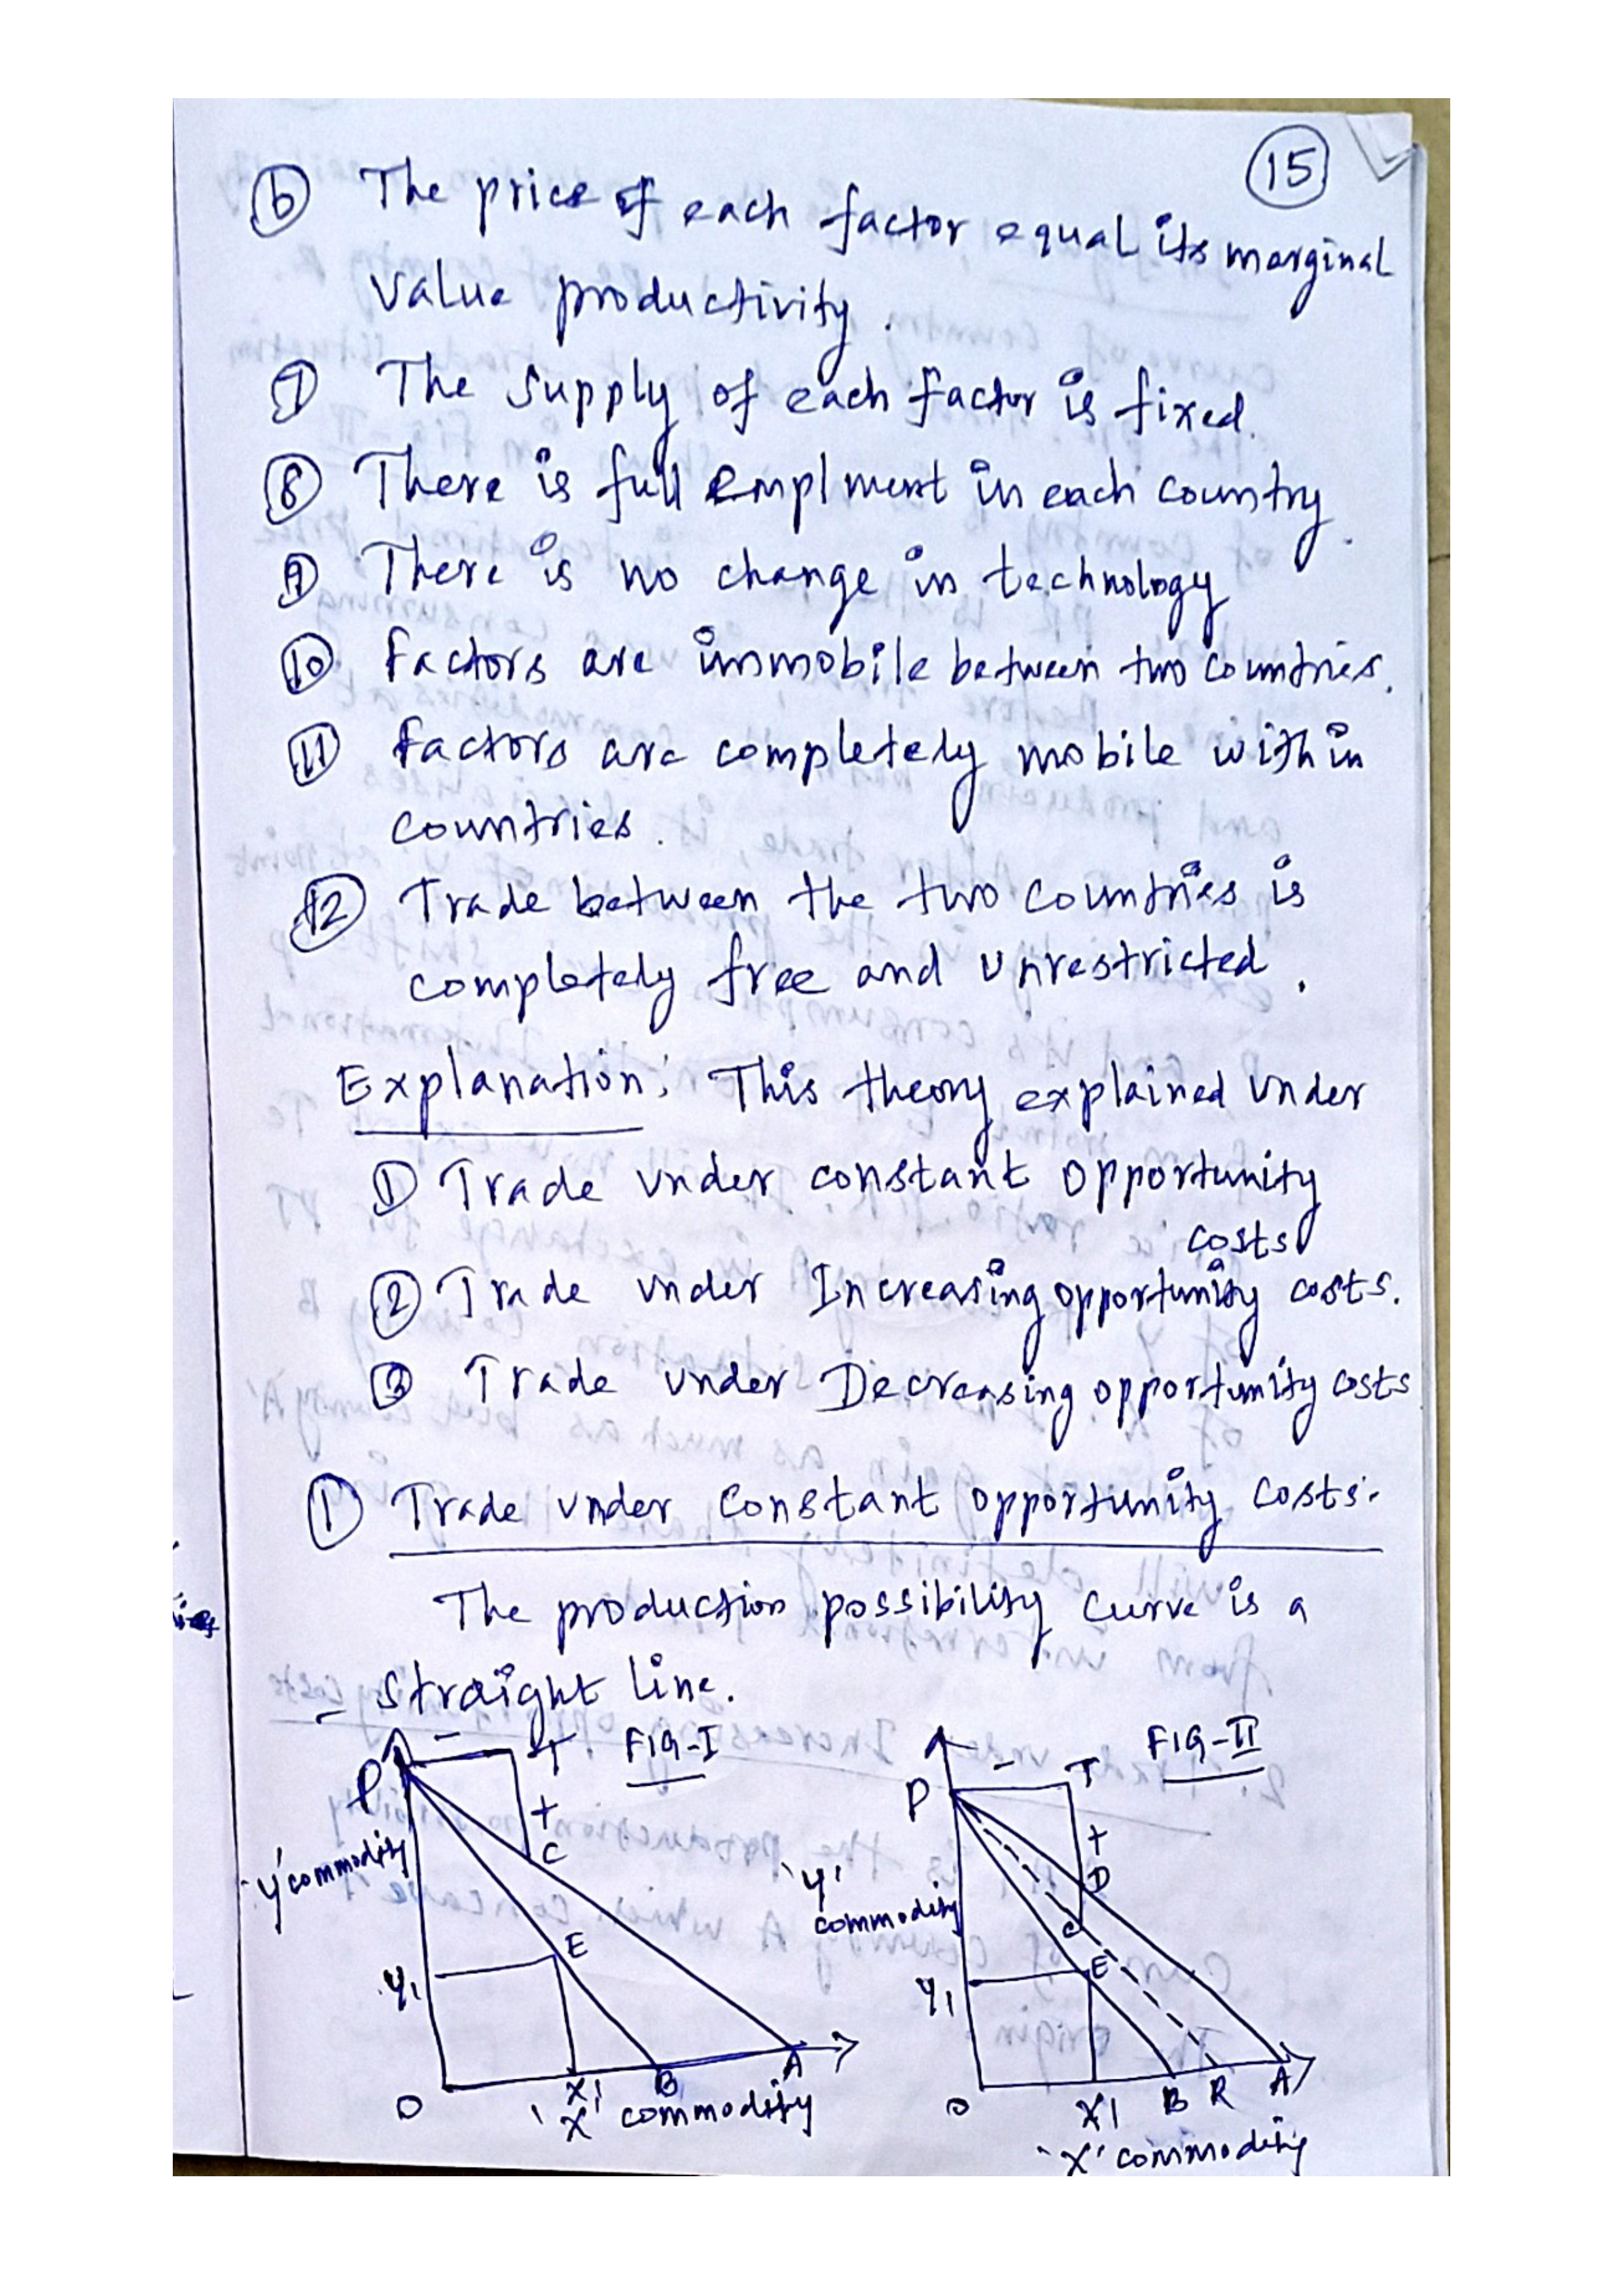 15
6 The price of each factor equal its marginal
value productivity.
7 The supply of each factor is fixed.
8 There is full emplment in each country.
9 There is no change in technology
10 Factors are immobile between two countries.
11 Factors are completely mobile within
countries.
12 Trade between the two countries is
completely free and unrestricted.
Explanation: This theory explained under
1 Trade under constant opportunity
costs
2 Trade under Increasing opportunity costs.
3 Trade under Decreasing opportunity costs
1 Trade under constant opportunity costs.
The production possibility curve is a
straight line.
FIG-I
P
T
+
C
'Y' commodity
E
Y1
O
X1
B
A
'X' commodity
FIG-II
P
T
+
D
'Y'
commodity
C
E
Y1
O
X1
B
R
A
'X' commodity